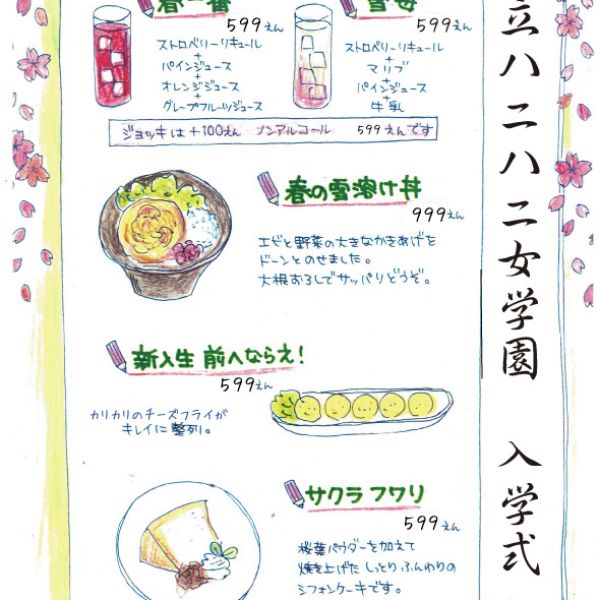 春一番
599えん
ストロベリーリキュール
+
パインジュース
+
オレンジジュース
+
グレープフルーツジュース
雪苺
599えん
ストロベリーリキュール
+
マリブ
+
パインジュース
+
牛乳
ジョッキは+100えん ノンアルコール 599えんです
春の雪溶け丼
999えん
エビと野菜の大きなかきあげを
ドーンとのせました。
大根おろしでサッパリどうぞ。
新入生 前へならえ!
599えん
カリカリのチーズフライが
キレイに整列。
サクラフワリ
599えん
桜葉パウダーを加えて
焼き上げたしっとりふんわりの
シフォンケーキです。
立八二八二女学園 入学式